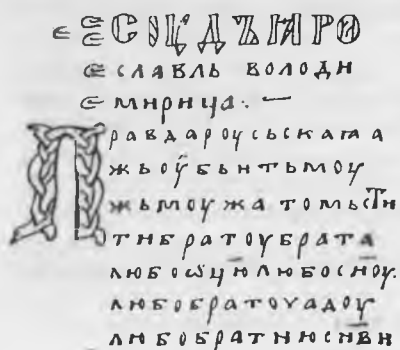 СОУДЪ ꙖРО
СЛАВЛЬ ВОЛОДИ
МИРИЦА·:—
ПРАВДАРОУСЬСКАꙖ А
ЖЬОУБЬИТЬМОУ
ЖЬМОУЖАТОМЬСТИ
ТИБРАТОУБРАТА
ЛЮБОѠЦ҃ИЛЮБОСН҃ОУ·
ЛЮБОБРАТОУАДОУ
ЛЮБОБРАТНЮСН҃ВИ